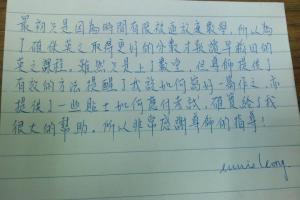 最初只是因為時間有限被逼放棄數學，所以為
了確保英文取得更好的分數才報讀早哉日的
英文課程。雖然只是上了數堂，但導師提供了
有效的方法提醒了我該如何寫好一篇作文，亦
提供了一些貼士如何應付考試，確實給了我
很大的幫助。所以非常感謝導師的指導！